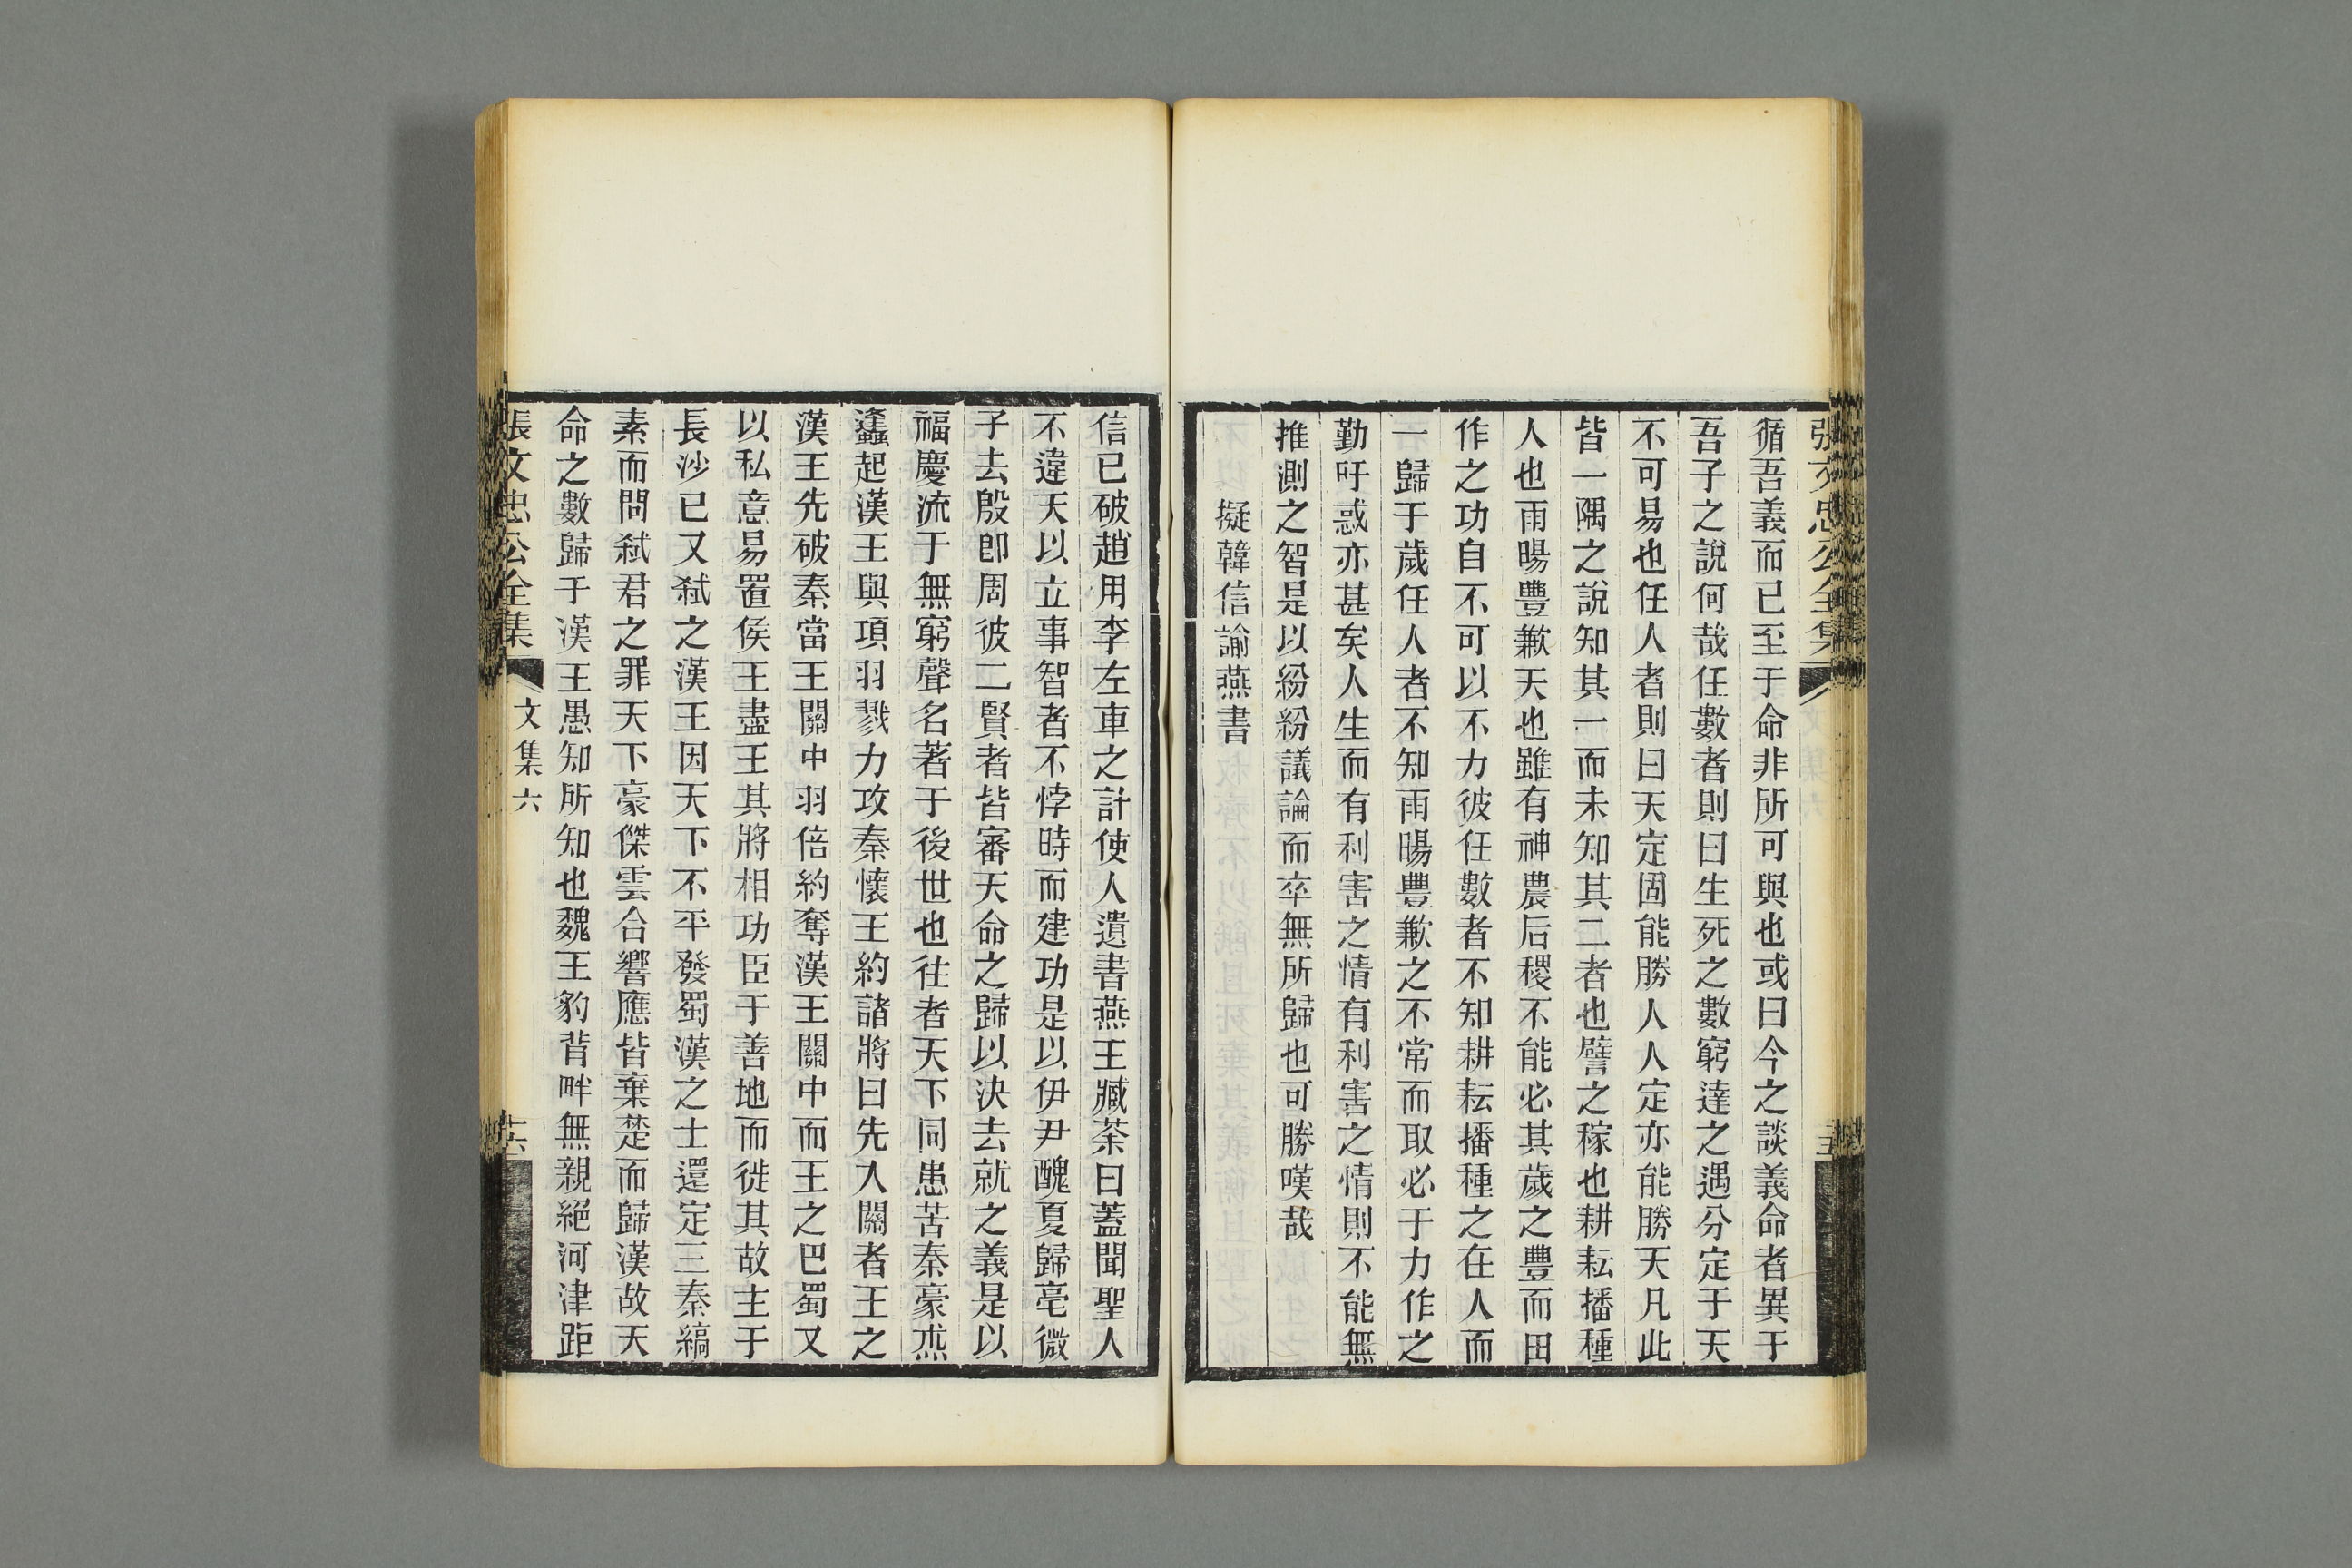 張文忠公全集
循吾義而已至于命非所可與也或曰今之談義命者異于
吾子之說何哉任數者則曰生死之數窮達之遇分定于天
不可易也任人者則曰天定固能勝人人定亦能勝天凡此
皆一隅之說知其一而未知其二者也譬之稼也耕耘播種
人也雨暘豐歉天也雖有神農后稷不能必其歲之豐而田
作之功自不可以不力彼任數者不知耕耘播種之在人而
一歸于歲任人者不知雨暘豐歉之不常而取必于力作之
勤吁惑亦甚矣人生而有利害之情有利害之情則不能無
推測之智是以紛紛議論而卒無所歸也可勝嘆哉
擬韓信諭燕書
信已破趙用李左車之計使人遺書燕王臧荼曰蓋聞聖人
不違天以立事智者不悖時而建功是以伊尹醜夏歸亳微
子去殷卽周彼二賢者皆審天命之歸以決去就之義是以
福慶流于無窮聲名著于後世也往者天下同患苦秦豪杰
蠭起漢王與項羽戮力攻秦懷王約諸將曰先入關者王之
漢王先破秦當王關中羽倍約奪漢王關中而王之巴蜀又
以私意易置侯王盡王其將相功臣于善地而徙其故主于
長沙已又弒之漢王因天下不平發蜀漢之士還定三秦縞
素而問弒君之罪天下豪傑雲合響應皆棄楚而歸漢故天
命之數歸于漢王愚知所知也魏王豹背畔無親絕河津距
張文忠公全集
文集六
十六